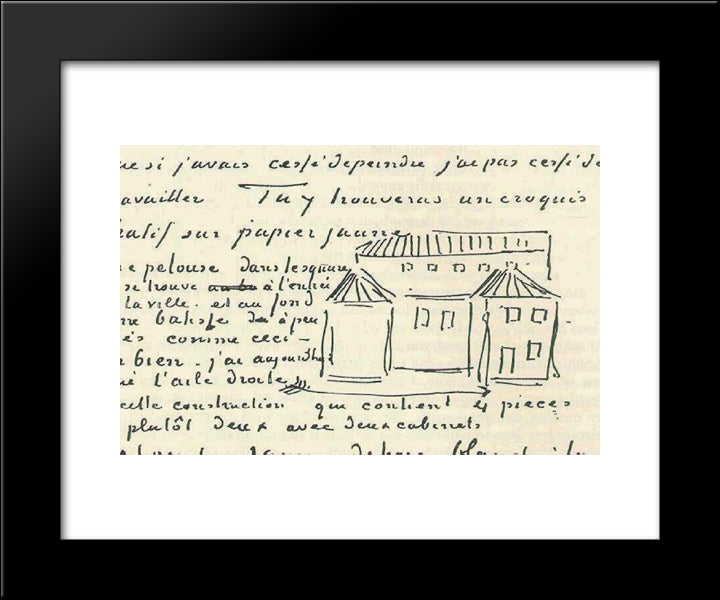 si j'avais cessé de peindre j'ai pas cessé de
availler Tu y trouveras un croquis
hatif sur papier jaune
e pelouse dans le square
se trouve à l'entrée
la ville. et au fond
batisse à peu
ès comme ceci -
bien. j'ai aujourd'hui
é l'aile droite
cette construction qui contient 4 pieces
plutôt deux avec deux cabinets